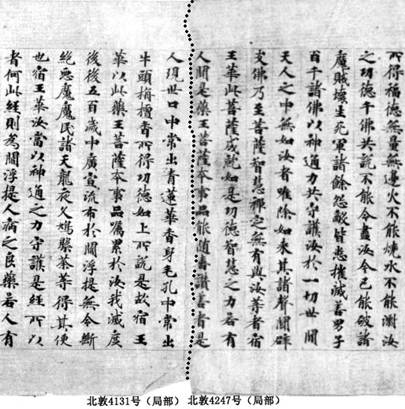 所得福德無量無邊火不能燒水不能漂汝
之功德千佛共說不能令盡汝今已能破諸
魔賊壞生死軍諸餘怨敵皆悉摧滅善男子
百千諸佛以神通力共守護汝於一切世間
天人之中無如汝者唯除如來其諸聲聞辟
支佛乃至菩薩智慧禪定無有與汝等者宿
王華此菩薩成就如是功德智慧之力若有
人聞是藥王菩薩本事品能隨喜讚善者是
人現世口中常出青蓮華香身毛孔中常出
牛頭栴檀香所得功德如上所說是故宿王
華以此藥王菩薩本事品囑累於汝我滅度
後後五百歲中廣宣流布於閻浮提無令斷
絕惡魔魔民諸天龍夜叉鳩槃荼等得其便
也宿王華汝當以神通之力守護是經所以
者何此經則為閻浮提人病之良藥若人有
北敦4131号（局部） 北敦4247号（局部）